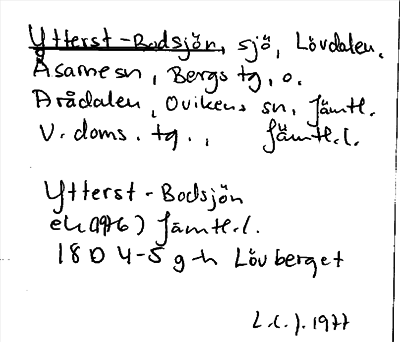 Ytterst-Bodsjön, sjö, Lövdalen,
Åsarne sn, Bergs tg, o.
Arådalen, Ovikens sn, Jämtl.
V. doms. tg., Jämtl.l.
Ytterst-Bodsjön
ek(1976) Jämtl.l.
18D 4-5 g-h Lövberget
1977